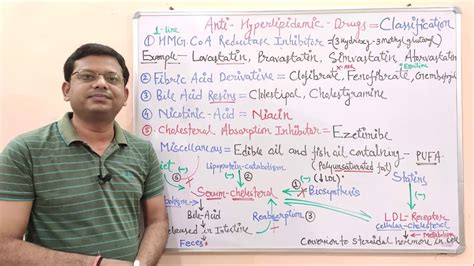 1-line
Anti-Hyperlipidemic-Drugs = Classification
① HMG-CoA Reductase Inhibitor → (3 Hydroxy-3methyl glutaryl)
Example- Lovastatin, Pravastatin, Simvastatin, Atorvastatin
② Fibric Acid Derivative = Clofibrate, Fenofibrate, Gemfibrozil
③ Bile Acid Resins = Cholestipol, Cholestyramine
④ Nicotinic-Acid = Niacin
⑤ Cholesterol Absorption Inhibitor = Ezetimibe
Miscellaneous = Edible oil and fish oil containing - PUFA
(Polyunsaturated fat)
Diet (-) Lipoprotein-catabolism (↓LDL) (-) Statins
⑤ ② ① (-)
Serum-cholesterol Biosynthesis
Bile-Acid Reabsorption ③ LDL-Receptor
cellular-cholesterol
Released in Intestine → metabolism
Feces Conversion to steroidal hormone in